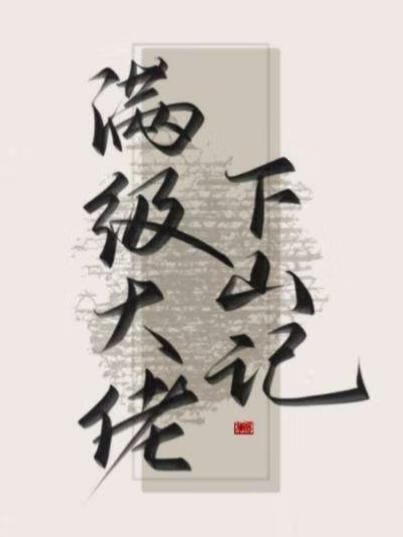 满级大佬
下山记